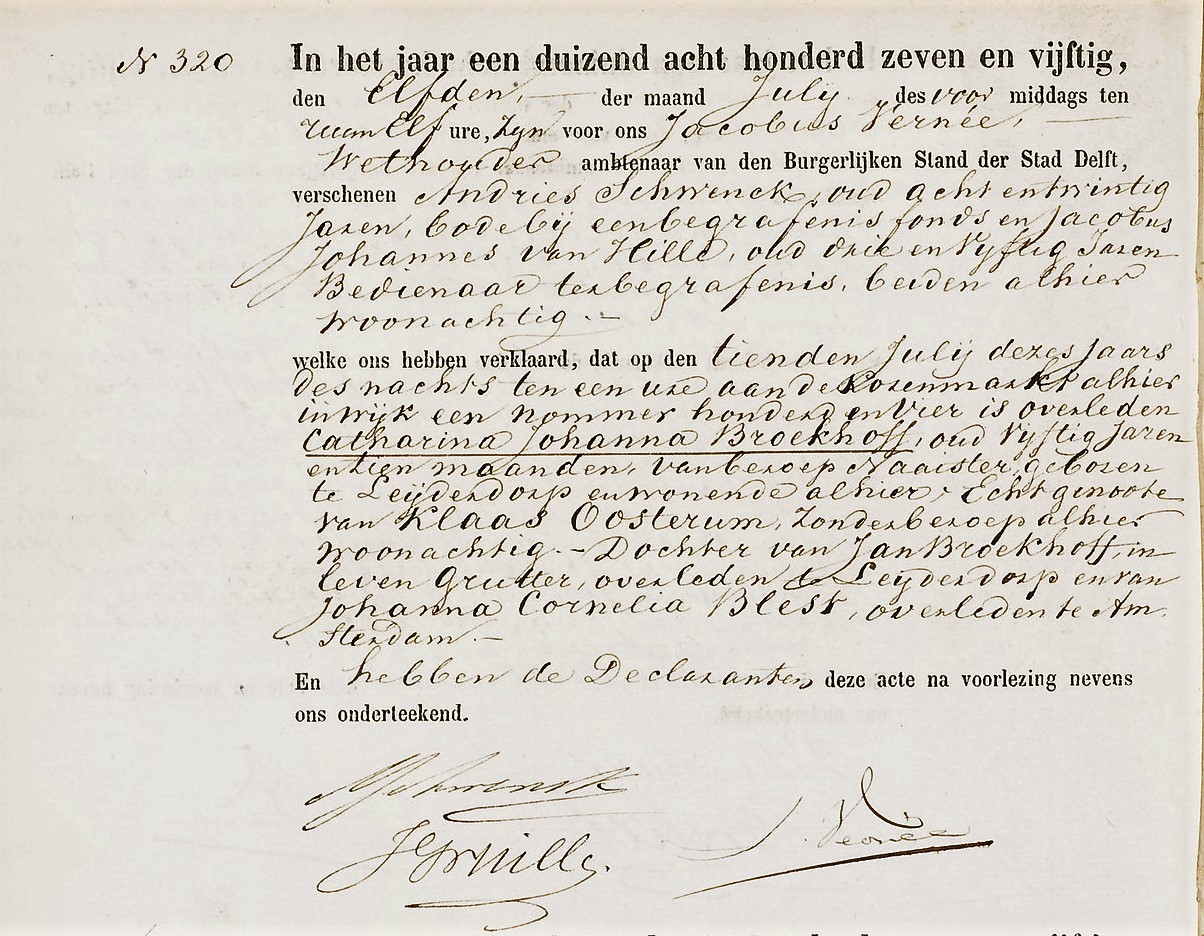 N 320
In het jaar een duizend acht honderd zeven en vijftig,
den Elfden, der maand July des voor middags ten
Elf ure, zyn voor ons Jacobus Vernée,
Wethouder ambtenaar van den Burgerlijken Stand der Stad Delft,
verschenen Andries Schwenck, oud acht en twintig
Jaren, bode bij een begrafenis fonds en Jacobus
Johannes van Hille, oud drie en Vyftig Jaren
Bedienaar ter begrafenis, beiden alhier
woonachtig.-
welke ons hebben verklaard, dat op den tienden Julij dezes Jaars
des nachts ten een ure aan de Korenmarkt alhier
in wijk een nommer honderd en Vier is overleden
Catharina Johanna Broekhoff, oud Vyftig Jaren
en tien maanden, van beroep Naaister, geboren
te Leijderdorp en wonende alhier, Echtgenoote
van Klaas Oosterum, zonder beroep alhier
woonachtig.- Dochter van Jan Broekhoff, in
leven Grutter, overleden te Leijderdorp en van
Johanna Cornelia Blest, overleden te Am
sterdam.-
En hebben de Declaranten deze acte na voorlezing nevens
ons onderteekend.
ASchwenck
JJvHille.
J. Vernée